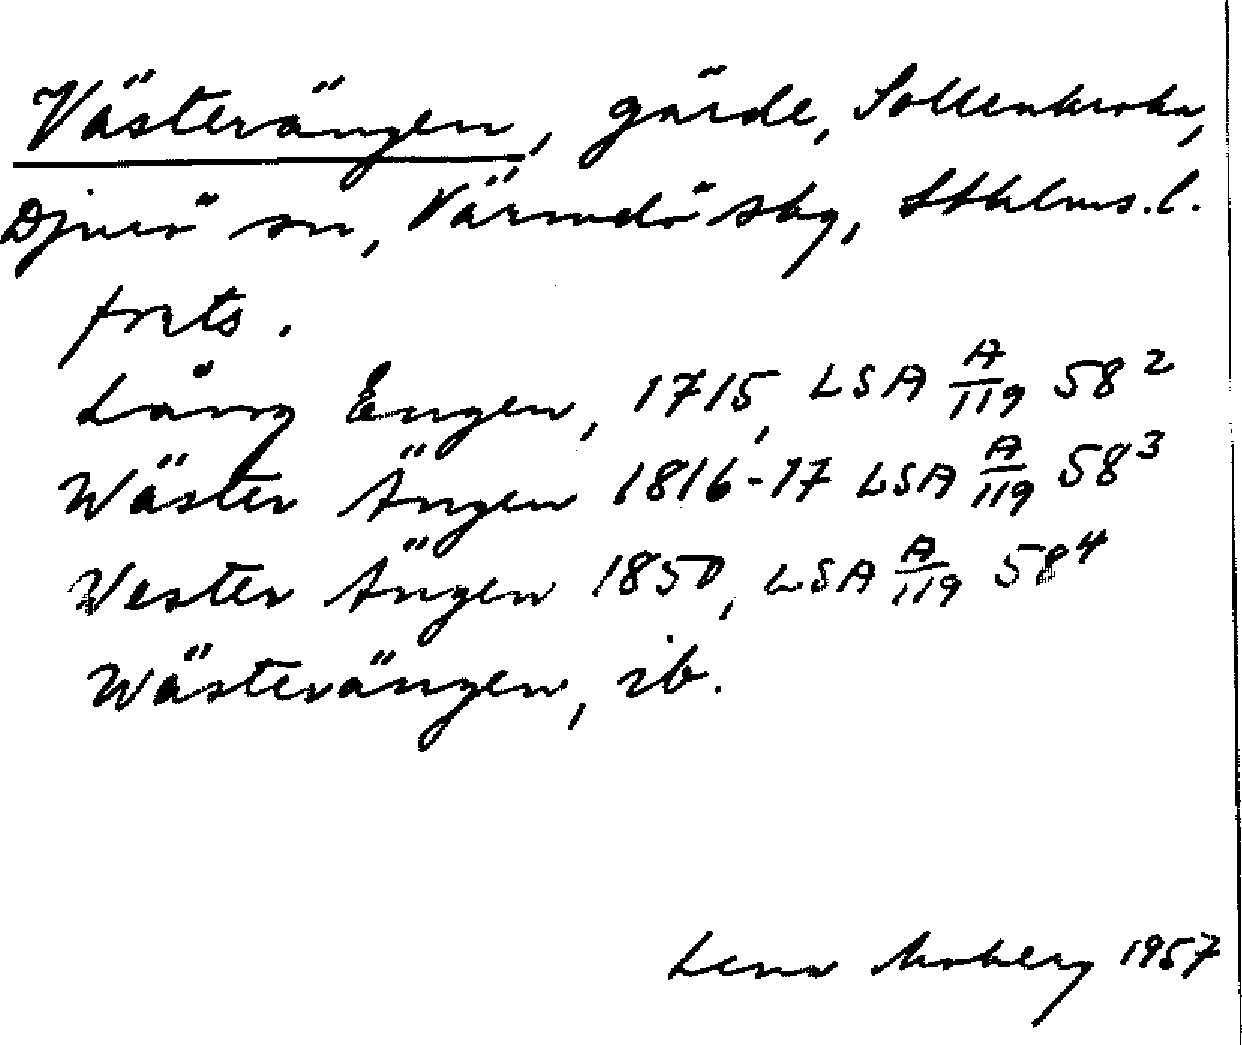 Västerängen, gärde, Sollenkroka,
Djurö sn, Värmdö skg, Sthlms.l.
forts.
Lång Engen, 1715, LSA A/119 58²
Wäster Ängen 1816-17 LSA A/119 58³
Wester Ängen 1850, LSA A/119 58⁴
Wästerängen, ib.
Lena Moberg 1957